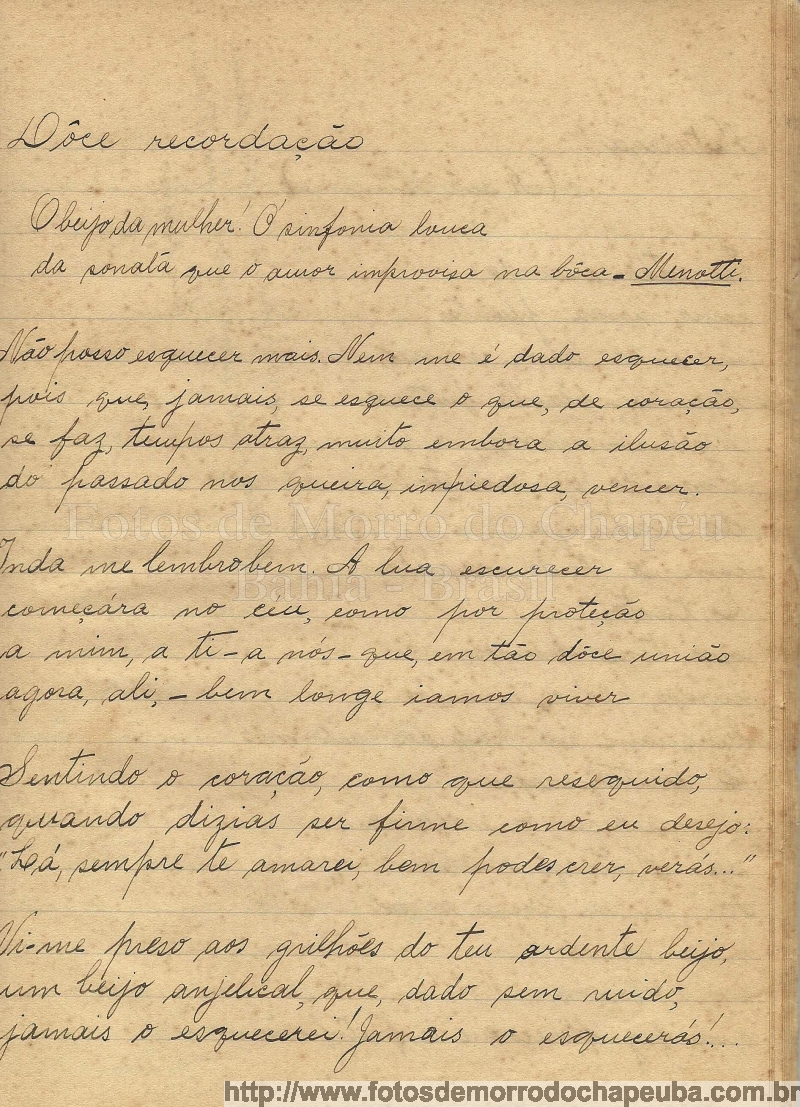 Dôce recordação
O beijo da mulher! Ó sinfonia louca
da sonata que o amor improvisa na bôca - Menotti.
Não posso esquecer mais. Nem me é dado esquecer,
pois que, jamais, se esquece o que, de coração,
se faz, tempos atraz, muito embora a ilusão
do passado nos queira, impiedosa, vencer.
Fotos de Morro do Chapéu
Bahia - Brasil
Inda me lembro bem. A lua escurecer
começára no céu, como por proteção
a mim, a ti - a nós - que, em tão dôce união
agora, ali, - bem longe iamos viver
Sentindo o coração, como que resequido,
quando dizias ser firme como eu desejo:
"Lá, sempre te amarei, bem podes crer, verás..."
Vi-me preso aos grilhões do teu ardente beijo,
um beijo anjelical, que, dado sem ruido,
jamais o esquecerei! Jamais o esquecerás!...
http://www.fotosdemorrodochapeuba.com.br